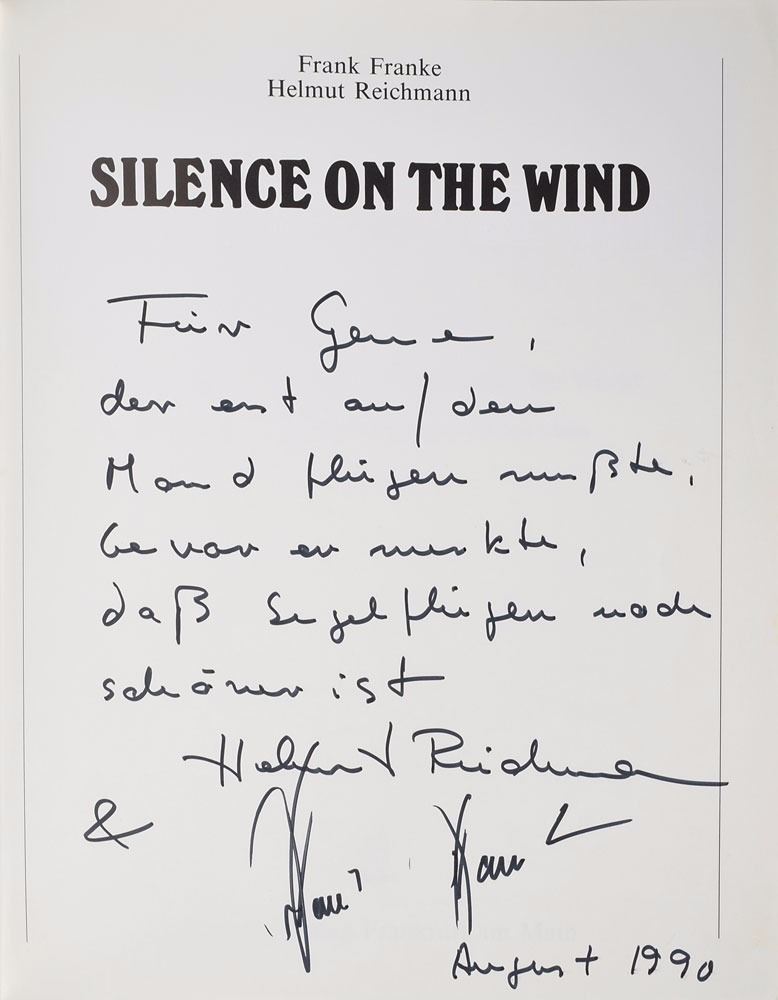 Frank Franke
Helmut Reichmann
SILENCE ON THE WIND
Für Gene,
der erst auf den
Mond fliegen mußte,
bevor er merkte,
daß Segelfliegen noch
schöner ist
Helmut Reichmann
&
August 1990